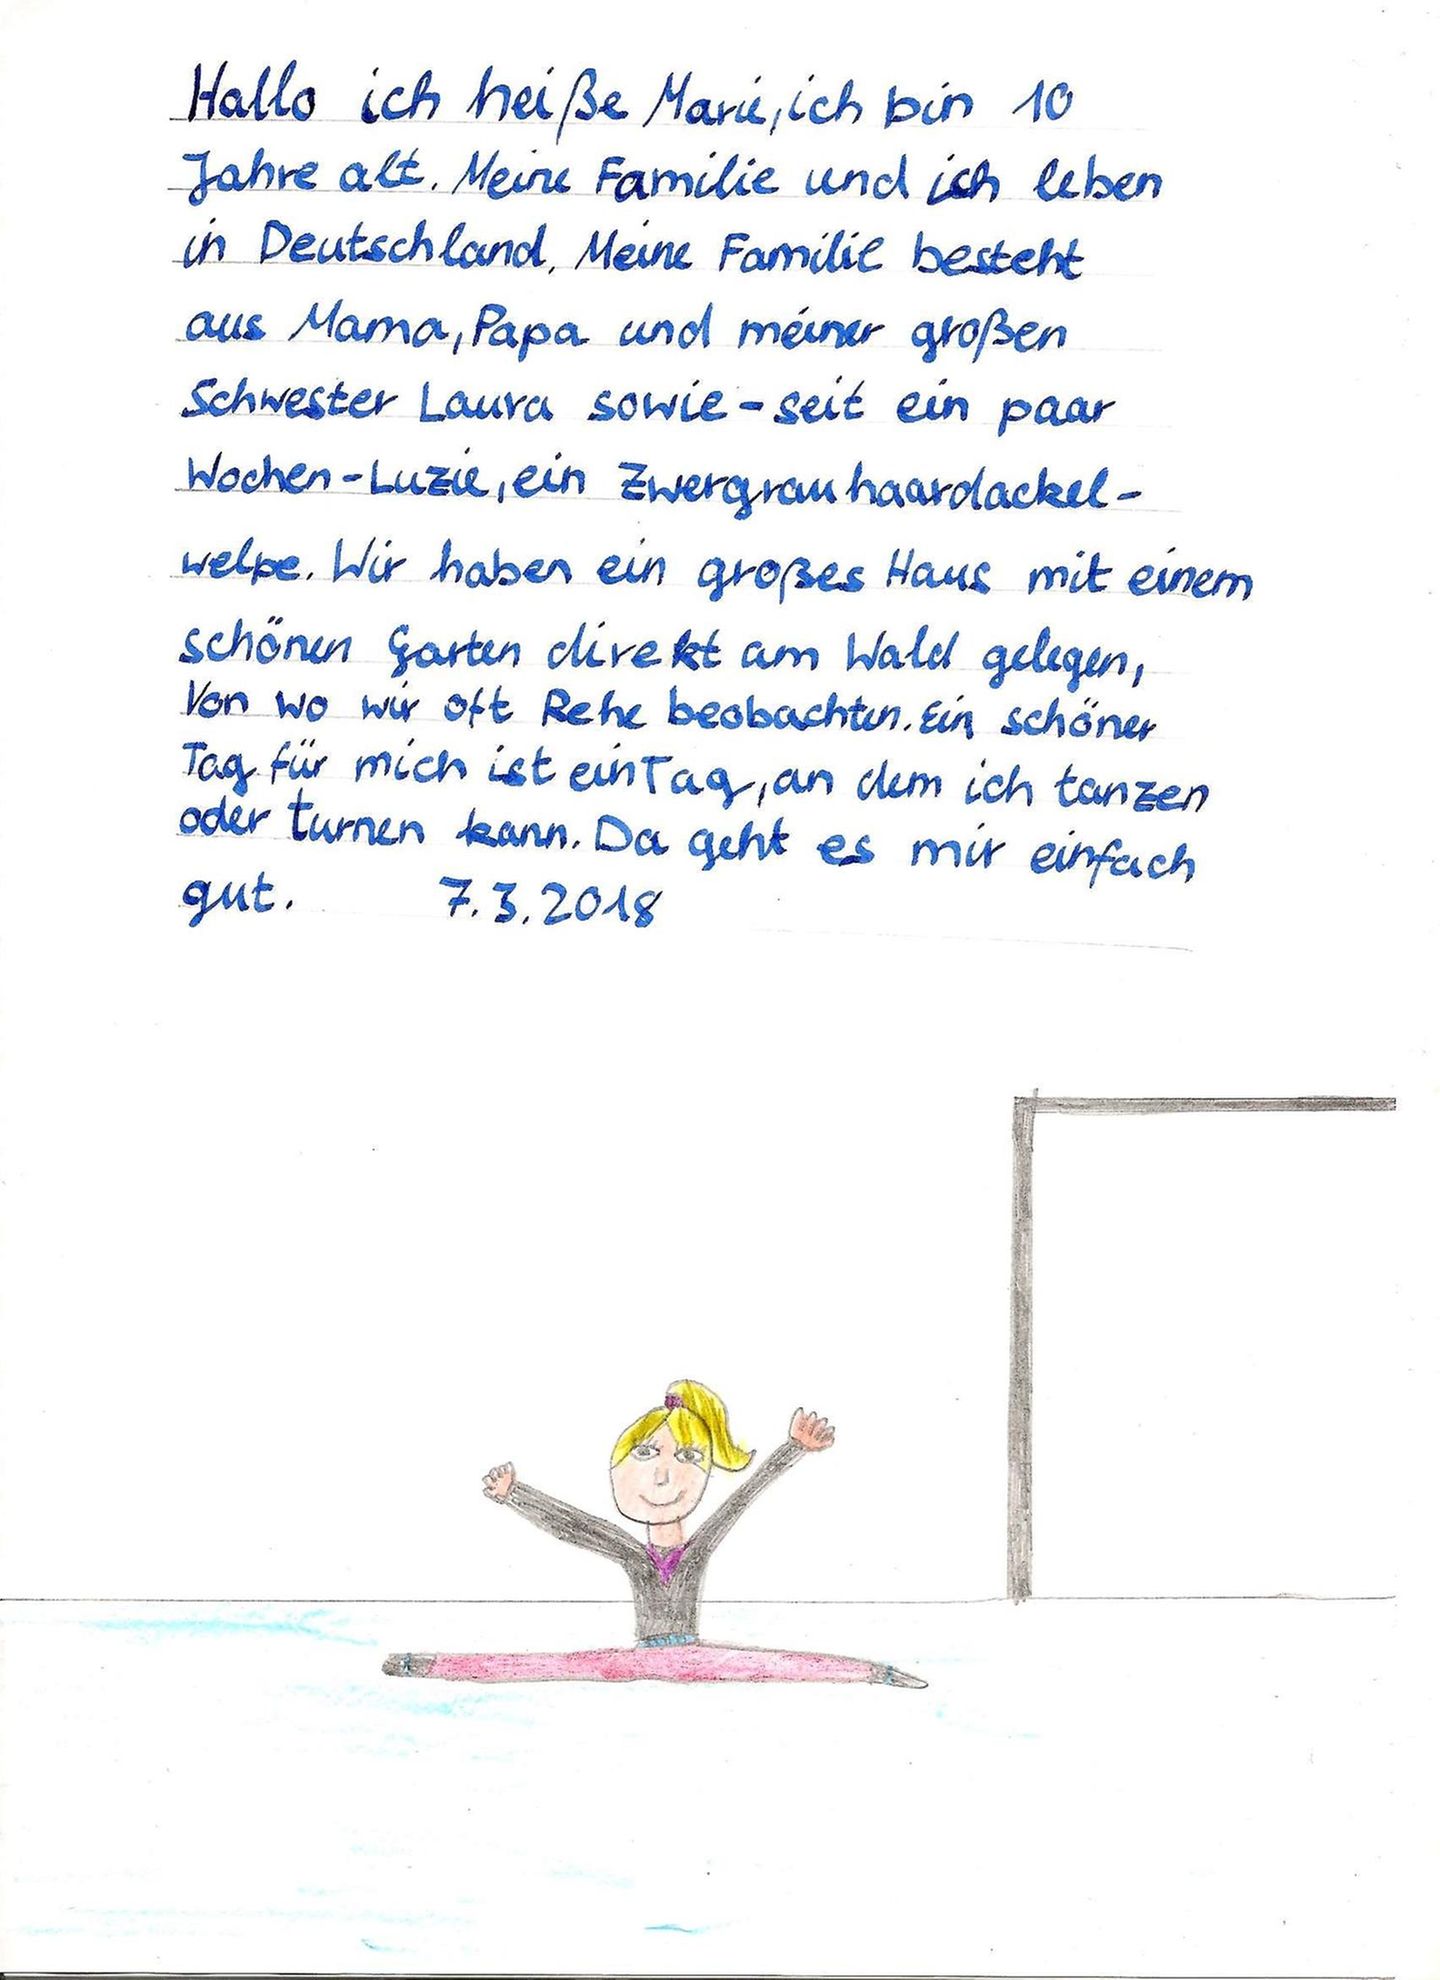 Hallo ich heiße Marie, ich bin 10
Jahre alt. Meine Familie und ich leben
in Deutschland. Meine Familie besteht
aus Mama, Papa und meiner großen
Schwester Laura sowie - seit ein paar
Wochen - Luzie, ein Zwergrauhaardackel-
welpe. Wir haben ein großes Haus mit einem
schönen Garten direkt am Wald gelegen,
von wo wir oft Rehe beobachten. Ein schöner
Tag für mich ist ein Tag, an dem ich tanzen
oder turnen kann. Da geht es mir einfach
gut. 7.3.2018